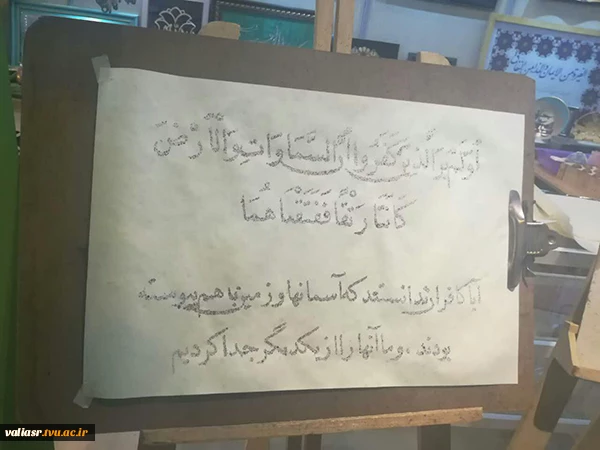 أَوَلَمْ يَرَ الَّذِينَ كَفَرُوا أَنَّ السَّمَاوَاتِ وَالْأَرْضَ
كَانَتَا رَتْقًا فَفَتَقْنَاهُمَا
ایا کافران ندانستند که آسمانها و زمین با هم پیوسته
بودند ، و ما آنها را از یکدیگر جدا کردیم
valiasr.tvu.ac.ir